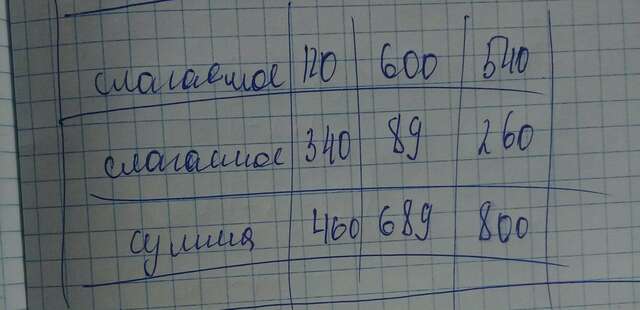 слагаемое 120 600 540
слагаемое 340 89 260
сумма 460 689 800